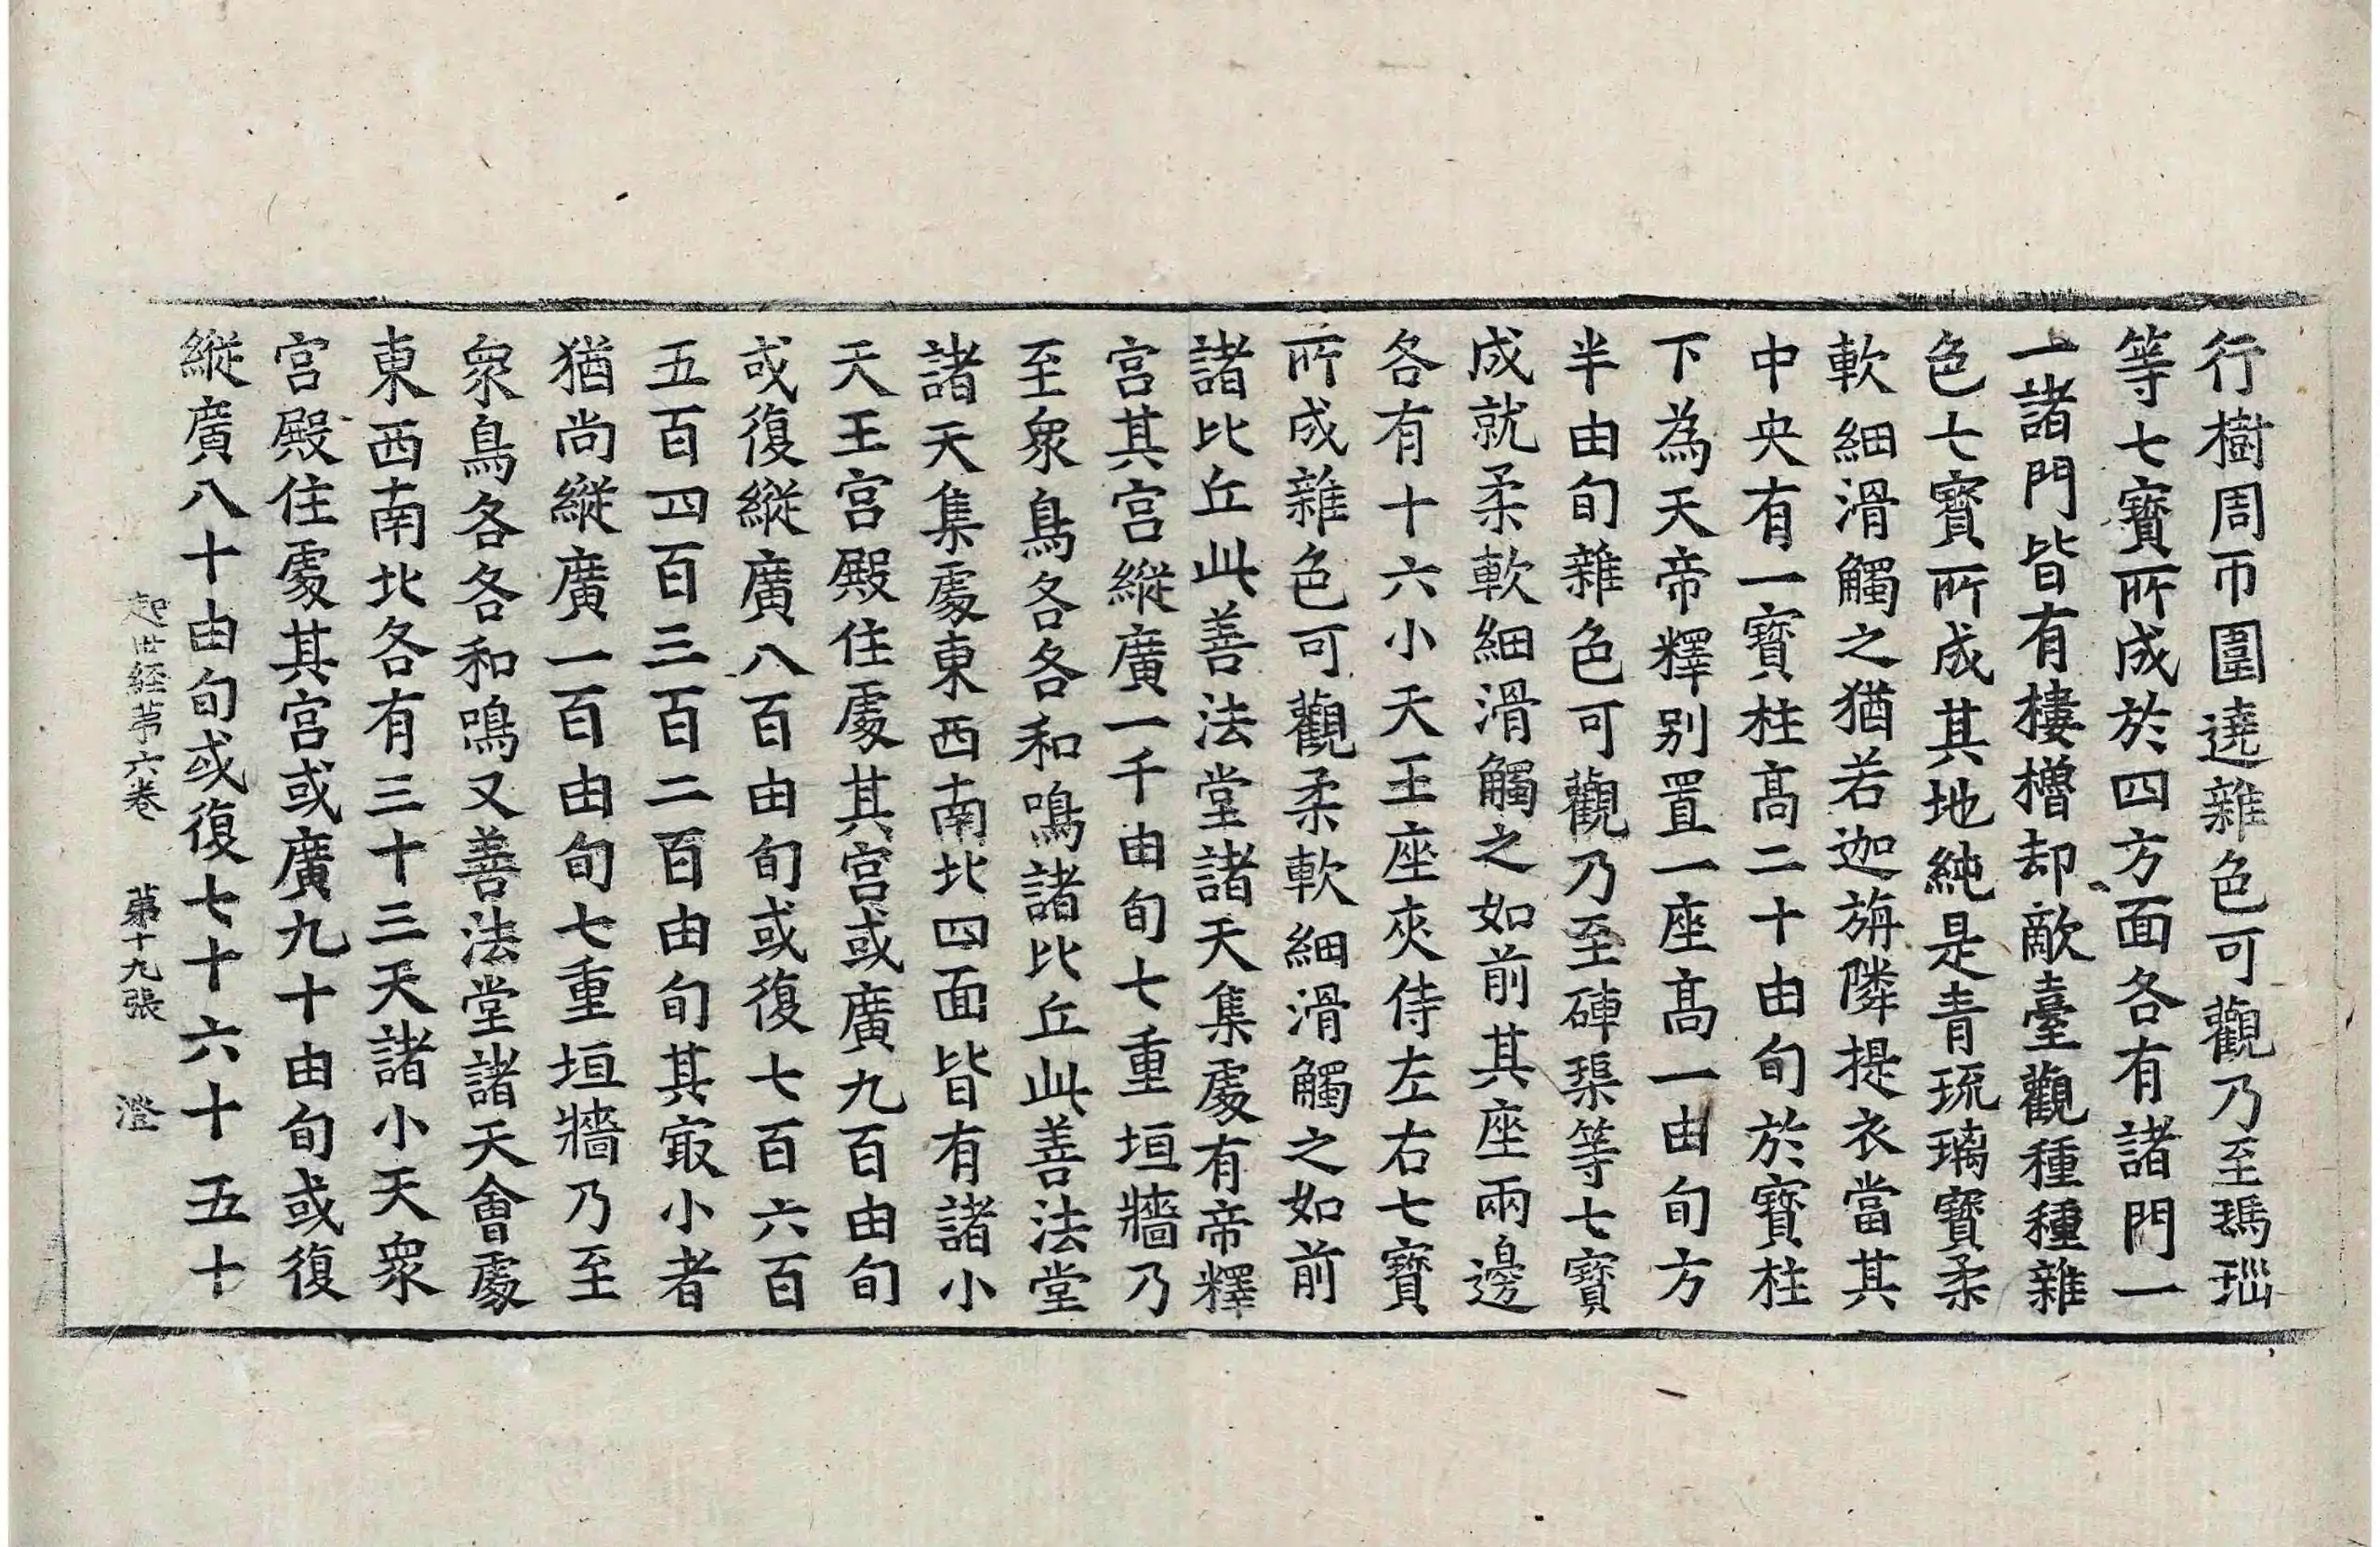 行樹周帀圍遶雜色可觀乃至瑪瑙
等七寶所成於四方面各有諸門一
一諸門皆有樓櫓却敵臺觀種種雜
色七寶所成其地純是青琉璃寶柔
軟細滑觸之猶若迦旃隣提衣當其
中央有一寶柱髙二十由旬於寶柱
下為天帝釋别置一座髙一由旬方
半由旬雜色可觀乃至硨磲等七寶
成就柔軟細滑觸之如前其座兩邊
各有十六小天王座夾侍左右七寶
所成雜色可觀柔軟細滑觸之如前
諸比丘此善法堂諸天集處有帝釋
宮其宮縱廣一千由旬七重垣牆乃
至衆鳥各各和鳴諸比丘此善法堂
諸天集處東西南北四面皆有諸小
天王宮殿住處其宮或廣九百由旬
或復縱廣八百由旬或復七百六百
五百四百三百二百由旬其㝡小者
猶尚縱廣一百由旬七重垣牆乃至
衆鳥各各和鳴又善法堂諸天會處
東西南北各有三十三天諸小天衆
宮殿住處其宮或廣九十由旬或復
縱廣八十由旬或復七十六十五十
起世経苐六卷 苐十九張 澄